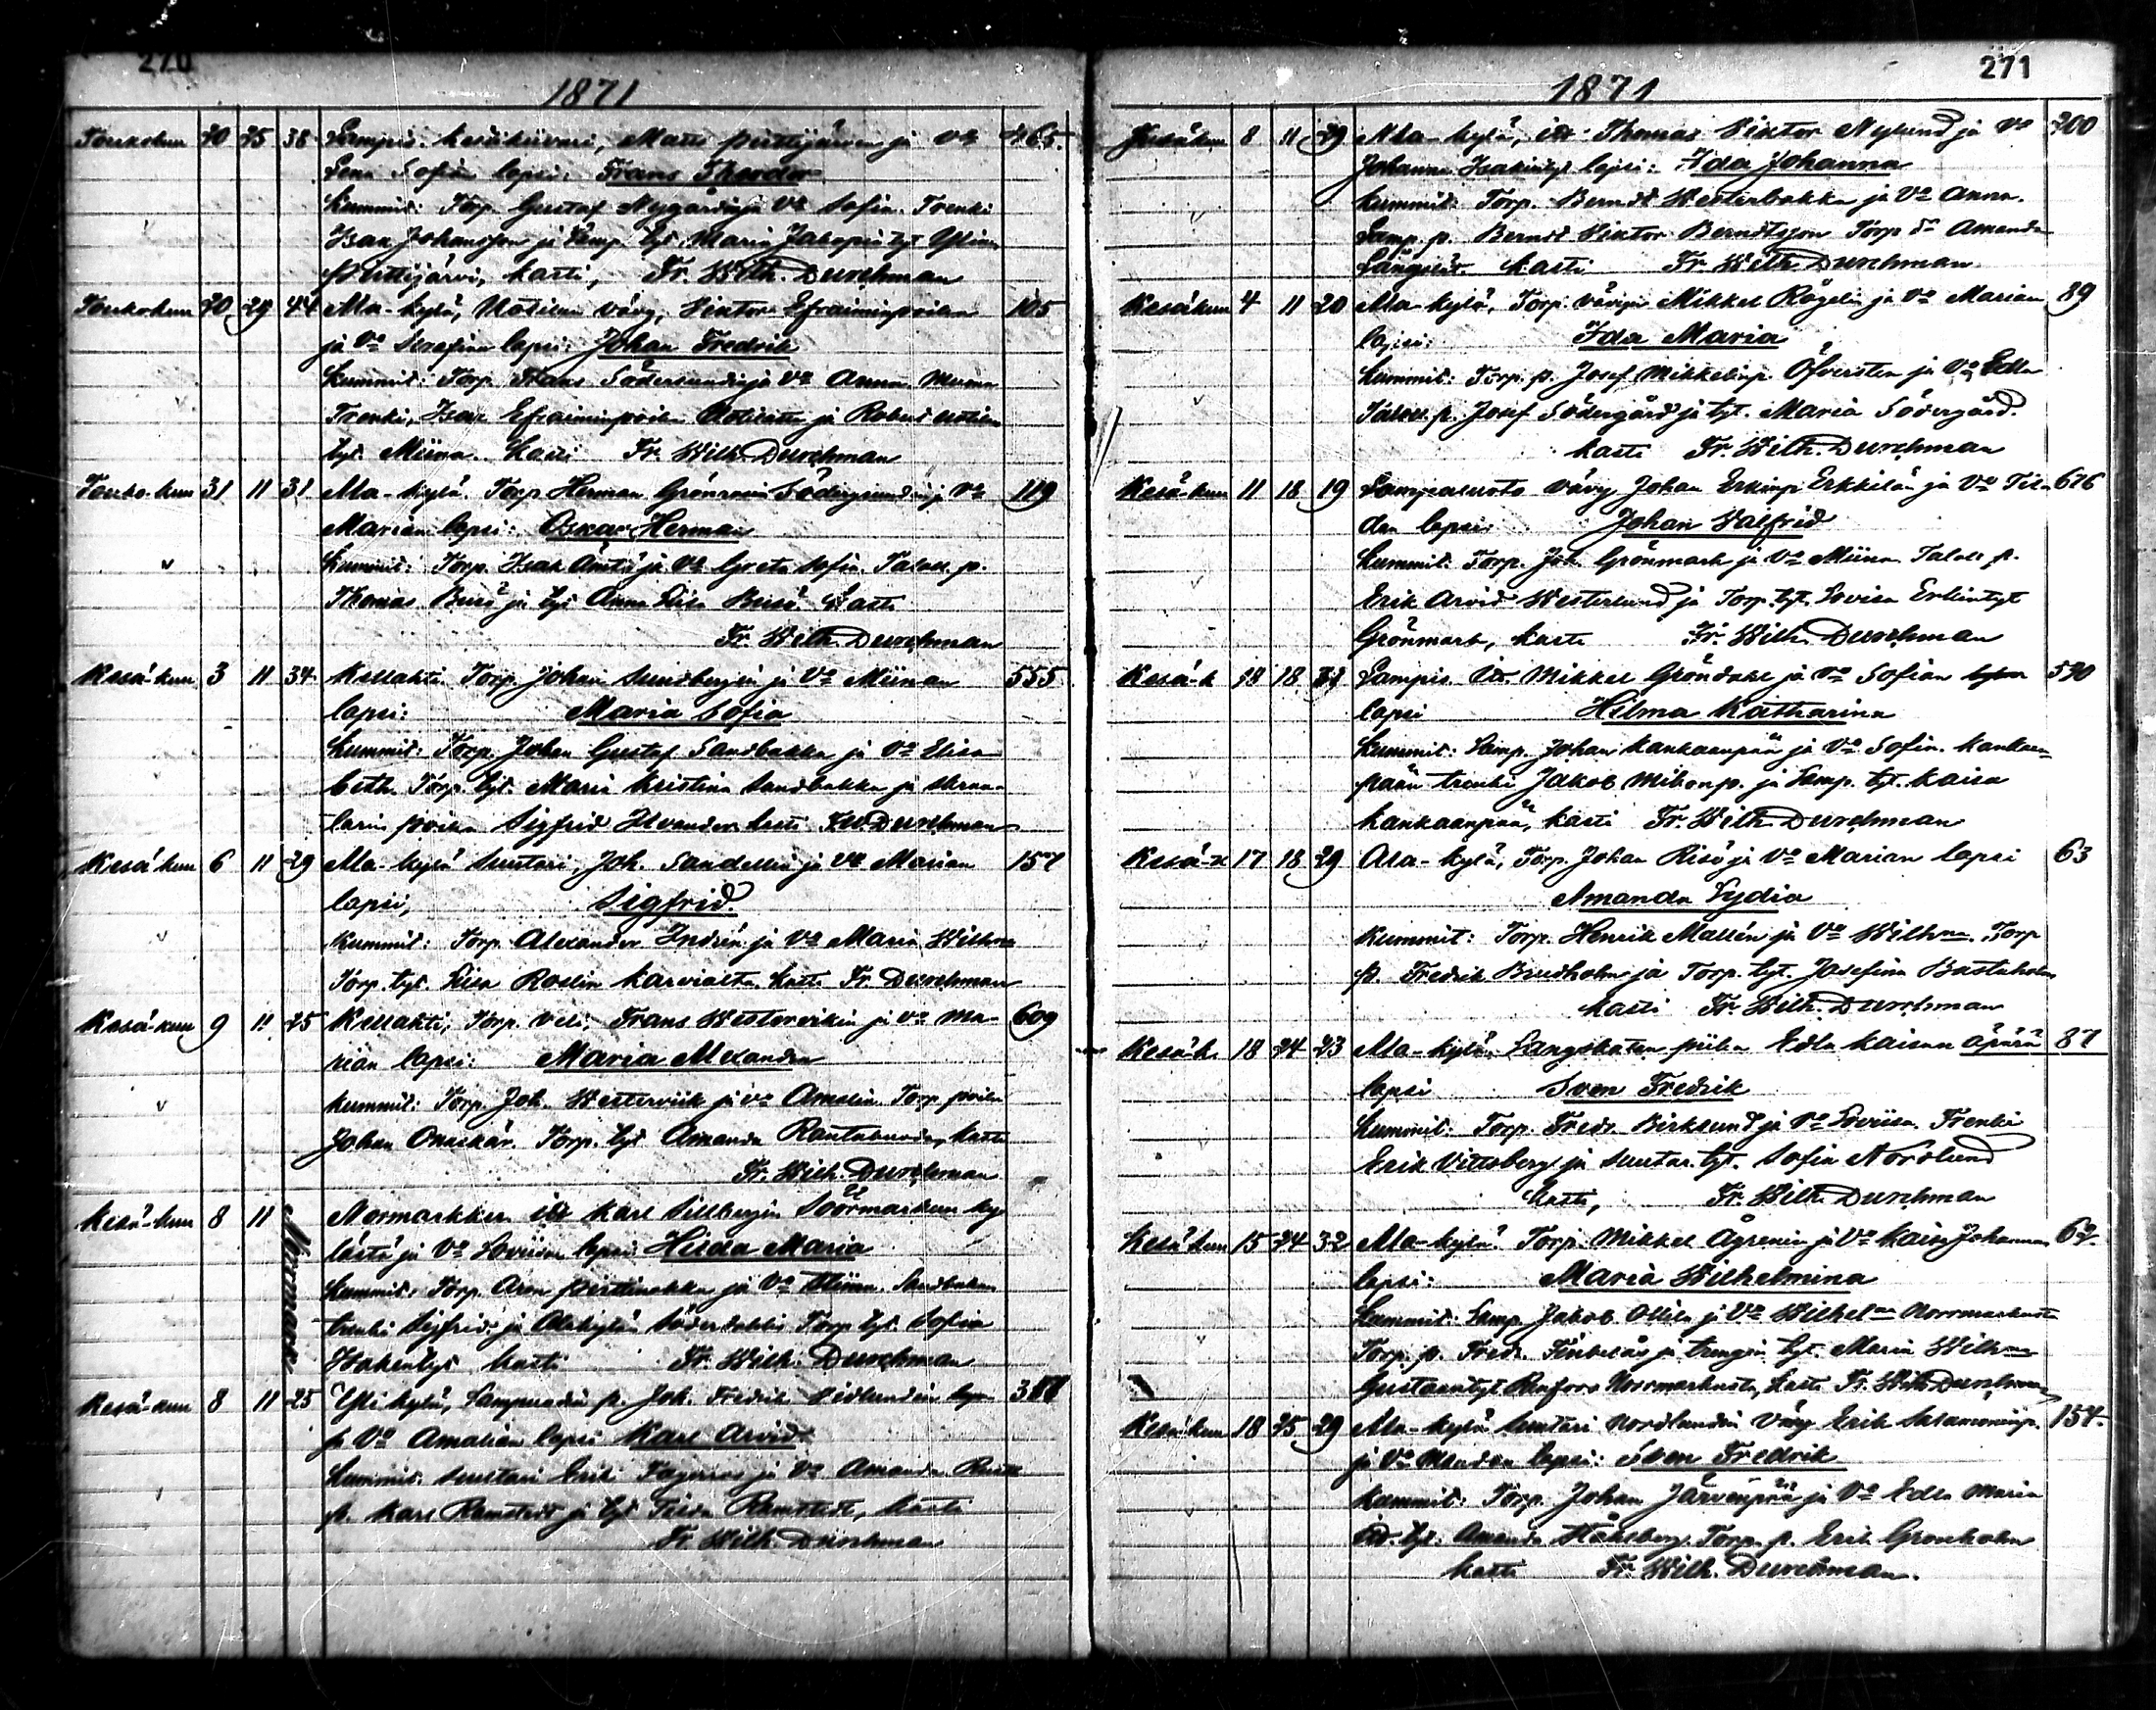 270
1871
Toukokuu 20 25 38 Lampis. kesäkiivari, Matts Perttijärven ja Vo 465
Lena Sofian lapsi: Frans Theodor
Kummit: Torp. Gustaf Nygårdin ja Vo Sofia. Trenki
Isak Johansson ja Lamp. tyt. Maria Jakopin tyt Ylinen
Perttijärvi, kasti, Fr. Wilh. Durchman
Toukokuu 20 29 44 Ala-kylä, Uotilan vävy, Viktor Efraiminpoika 105
ja Vo Serafina lapsi: Johan Fredrik
Kummit: Torp. Frans Södersundin ja Vo Anna
Trenki, Isak Efraiminpoika Uotilasta ja Robert Uotilan
tyt. Miina. Kasti Fr. Wilh. Durchman
Touko-kuu 31 11 31 Ala-kylä. Torp Herman Grönroos Södersundin ja Vo 119
Marian lapsi: Oskar Herman
Kummit: Torp. Isak Ämtö ja Vo Greta Sofia. Taloll. p.
Thomas Busö ja tyt Anna Liisa Busö. Kasti
Fr. Wilh. Durchman
Kesä-kuu 3 11 34 Kellahti Torp. Johan Sundbergin ja Vo Miinan 555
lapsi: Maria Sofia
Kummit: Torp. Johan Gustaf Sandbakka ja Vo Elisa-
beth. Torp. tyt. Maria Kristina Sandbakka ja
poika Sigfrid kasti F.W. Durchman
Kesä-kuu 6 11 29 Ala-kylä Suutari, Joh. Sandellin ja Vo Marian 157
lapsi, Sigfrid
Kummit: Torp. Alexander Indrén ja Vo Maria Wilhma
Torp. tyt. Liisa Roslin Karvialta. kasti Fr. Durchman
Kesä-kuu 9 11 25 Kellahti, Torp. veli, Frans Westervikin ja Vo Ma- 609
rian lapsi: Maria Alexandra
Kummit: Torp. Joh. Westervik ja Vo Amalia Torp. poika
Johan Onaskär. Torp. tyt Amanda kasti
Fr. Wilh. Durchman
Kesä-kuu 8 11 Normark Normarkken itll Karl Sillbergin Söörmarkun ky-
lästä ja Vo Loviisan lapsi Hilda Maria
Kummit: Torp. Aron ja Vo Miina. Sandbakan
trenki Sigfrid ja Alakylän Torp. tyt. Sofia
Isakintyt kasti Fr. Wilh. Durchman
Kesä-kuu 8 11 25 Yli kylä, Lampuodin p. Joh. Fredrik Vidlundin
ja Vo Amalian lapsi Karl Arvid
Kummit. Suutari Erik Fagerros ja Vo Amanda
p. Karl Ramstedt ja tyt Tilda Ramstedt, kasti
Fr. Wilh. Durchman
271
1871
Kesäkuu 8 11 29 Ala-kylä, itll Thomas Viktor Nylund ja Vo 200
Johanna Isakintyt lapsi: Ida Johanna
Kummit: Torp. Berndt Westerbakka ja Vo Anna.
Lamp. p. Berndt Viktor Berndtsson Torp Amanda
Långsät. kasti Fr. Wilh. Durchman
Kesäkuu 4 11 20 Ala-kylä, Torp. vävyn Mikkel Rögelin ja Vo Marian 89
lapsi: Ida Maria
Kummit: Torp. p. Josef Mikkelinp. Öfversten ja Vo Edla
Taloll. p. Josef Södergård ja tyt. Maria Södergård.
kasti Fr. Wilh. Durchman
Kesä-kuu 11 18 19 vävy Johan Erkinp Erkkilän ja Vo Til- 676
dan lapsi Johan Walfrid
Kummit: Torp. Joh. Grönmark ja Vo Miina Taloll p.
Erik Arvid Westerlund ja Torp. tyt. Lovisa Erkintyt
Grönmark, kasti Fr. Wilh. Durchman
Kesä-k 18 18 Lampis. Itll. Mikkel Gröndahl ja Vo Sofian 590
lapsi Hilma Katharina
Kummit: Lamp. Johan Kankaanpää ja Vo Sofia. Kankaan-
pään trenki Jakob Mikonp. ja Lamp. tyt. Kaisa
Kankaanpää, kasti Fr. Wilh. Durchman
Kesä-k 17 18 29 Ala-kylä, Torp. Johan Risö ja Vo Marian lapsi 63
Amanda Lydia
Kummit: Torp. Henrik Mallén ja Vo Wilhma. Torp
p. Fredrik Brudholm ja Torp. tyt. Josefina Bastuholm
kasti Fr. Wilh. Durchman
Kesä-k. 18 24 23 Ala-kylän Långskatan piika Edla Kaisan äpärä 87
lapsi Sven Fredrik
Kummit: Torp. Fredr. Birklund ja Vo Loviisa. Trenki
Erik Vittsberg ja suutar. tyt. Sofia Norrlund
kasti, Fr. Wilh. Durchman
Kesä-kuu 15 24 32 Ala-kylä. Torp. Mikkel Ågrenin ja Vo Kaisa Johannan 62
lapsi: Maria Wilhelmina
Kummit: Lamp. Jakob Ollila ja Vo Wilhelma Norrmarkusta
Torp. p. Fredr. ja tyt. Maria Wilhma
Gustavintyt Norrmarkusta, kasti Fr. Wilh Durchman
Kesä-kuu 18 25 29 Ala-kylä suutari Nordlundin vävy Erik Salamoninp. 154
ja Vo Mandan lapsi: Sven Fredrik
Kummit: Torp. Johan Järvenpää ja Vo Edla Maria
itll. tyt: Amanda Stålsberg. Torp. p. Erik Gronholm
kasti Fr. Wilh. Durchman.